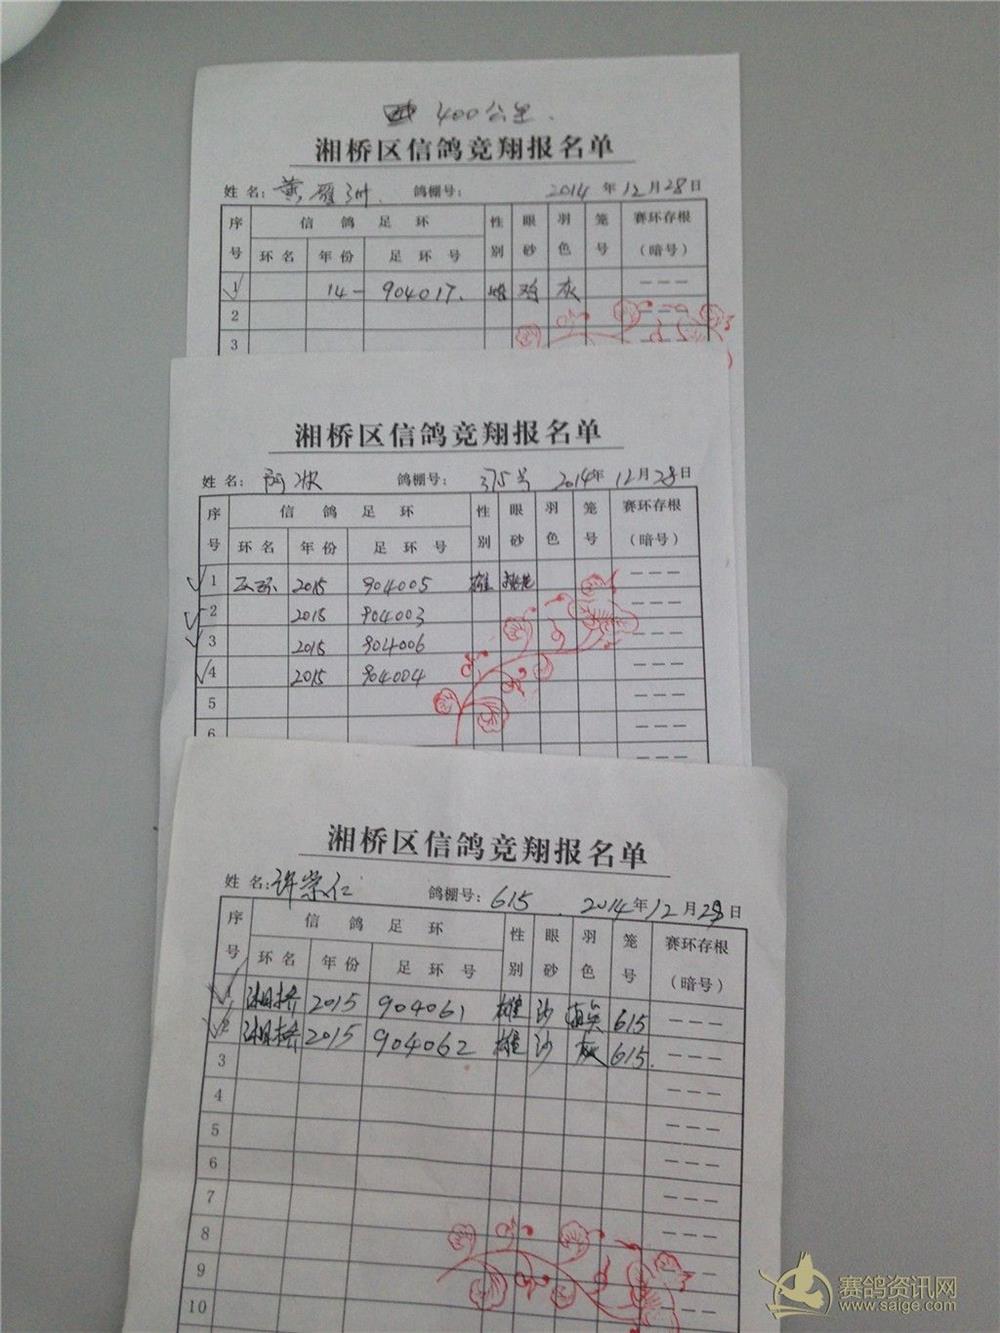 400公里.
湘桥区信鸽竞翔报名单
姓 名: 黄雁洲. 鸽棚号: 2014 年 12 月 28 日
序号 信 鸽 足 环 性别 眼砂 羽色 笼号 赛环存根(暗号)
环 名 年 份 足 环 号
1 14- 904017. 灰 — — —
2 — — —
3 — — —
湘桥区信鸽竞翔报名单
姓 名: 阿冰 鸽棚号: 375号 2014 年 12 月 28 日
序号 信 鸽 足 环 性别 眼砂 羽色 笼号 赛环存根(暗号)
环 名 年 份 足 环 号
1 2015 904005 雄 桃花 — — —
2 2015 904003 — — —
3 2015 904006 — — —
4 2015 904004 — — —
5 — — —
6 — — —
湘桥区信鸽竞翔报名单
姓 名: 许崇仁 鸽棚号: 615 . 2014 年 12 月 28 日
序号 信 鸽 足 环 性别 眼砂 羽色 笼号 赛环存根(暗号)
环 名 年 份 足 环 号
1 湘桥 2015 904061 雄 沙 615 — — —
2 湘桥 2015 904062 雄 沙 灰 615. — — —
3 — — —
4 — — —
5 — — —
6 — — —
7 — — —
8 — — —
9
10
赛鸽资讯网
www.saige.com